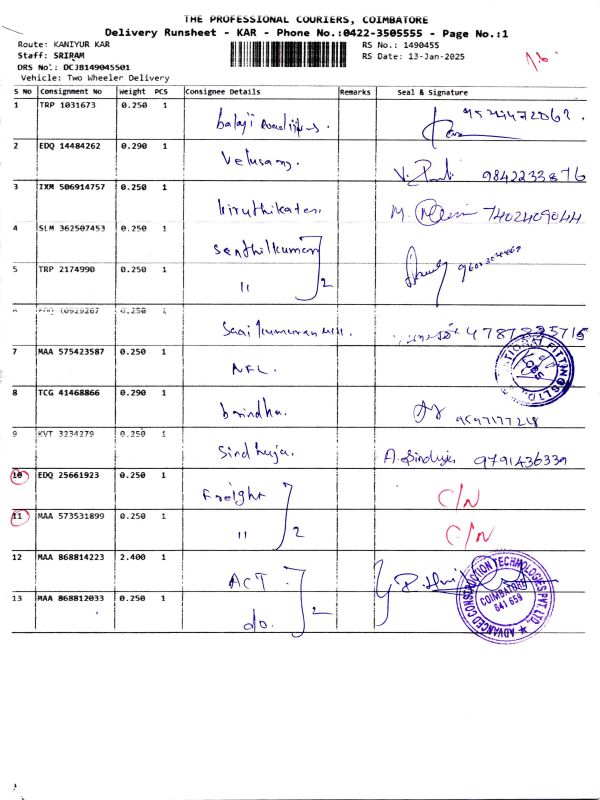 THE PROFESSIONAL COURIERS, COIMBATORE
Delivery Runsheet - KAR - Phone No.:0422-3505555 - Page No.:1
Route: KANIYUR KAR
RS No.: 1490455
Staff: SRIRAM
RS Date: 13-Jan-2025
DRS No.: DCJB149045501
Vehicle: Two Wheeler Delivery
S No Consignment No Weight PCS Consignee Details Remarks Seal & Signature
1 TRP 1031673 0.250 1 balaji
2 EDQ 14484262 0.290 1 Velusamy 9842233876
3 IXM 506914757 0.250 1 kiruthika 7402409044
4 SLM 362507453 0.250 1 Senthilkumar
5 TRP 2174990 0.250 1 " 2
10929267 0.250 1
7 MAA 575423587 0.250 1 NFL.
8 TCG 41468866 0.290 1 brindha.
9 KVT 3234279 0.250 1 Sindhuja. A. Sindhuja 9791436339
10 EDQ 25661923 0.250 1 Freight C/N
11 MAA 573531899 0.250 1 " 2 C/N
12 MAA 868814223 2.400 1 ACT.
13 MAA 868812033 0.250 1 do. 2
ADVANCED CONSTRUCTION TECHNOLOGIES PVT LTD.,
COIMBATORE
641 659